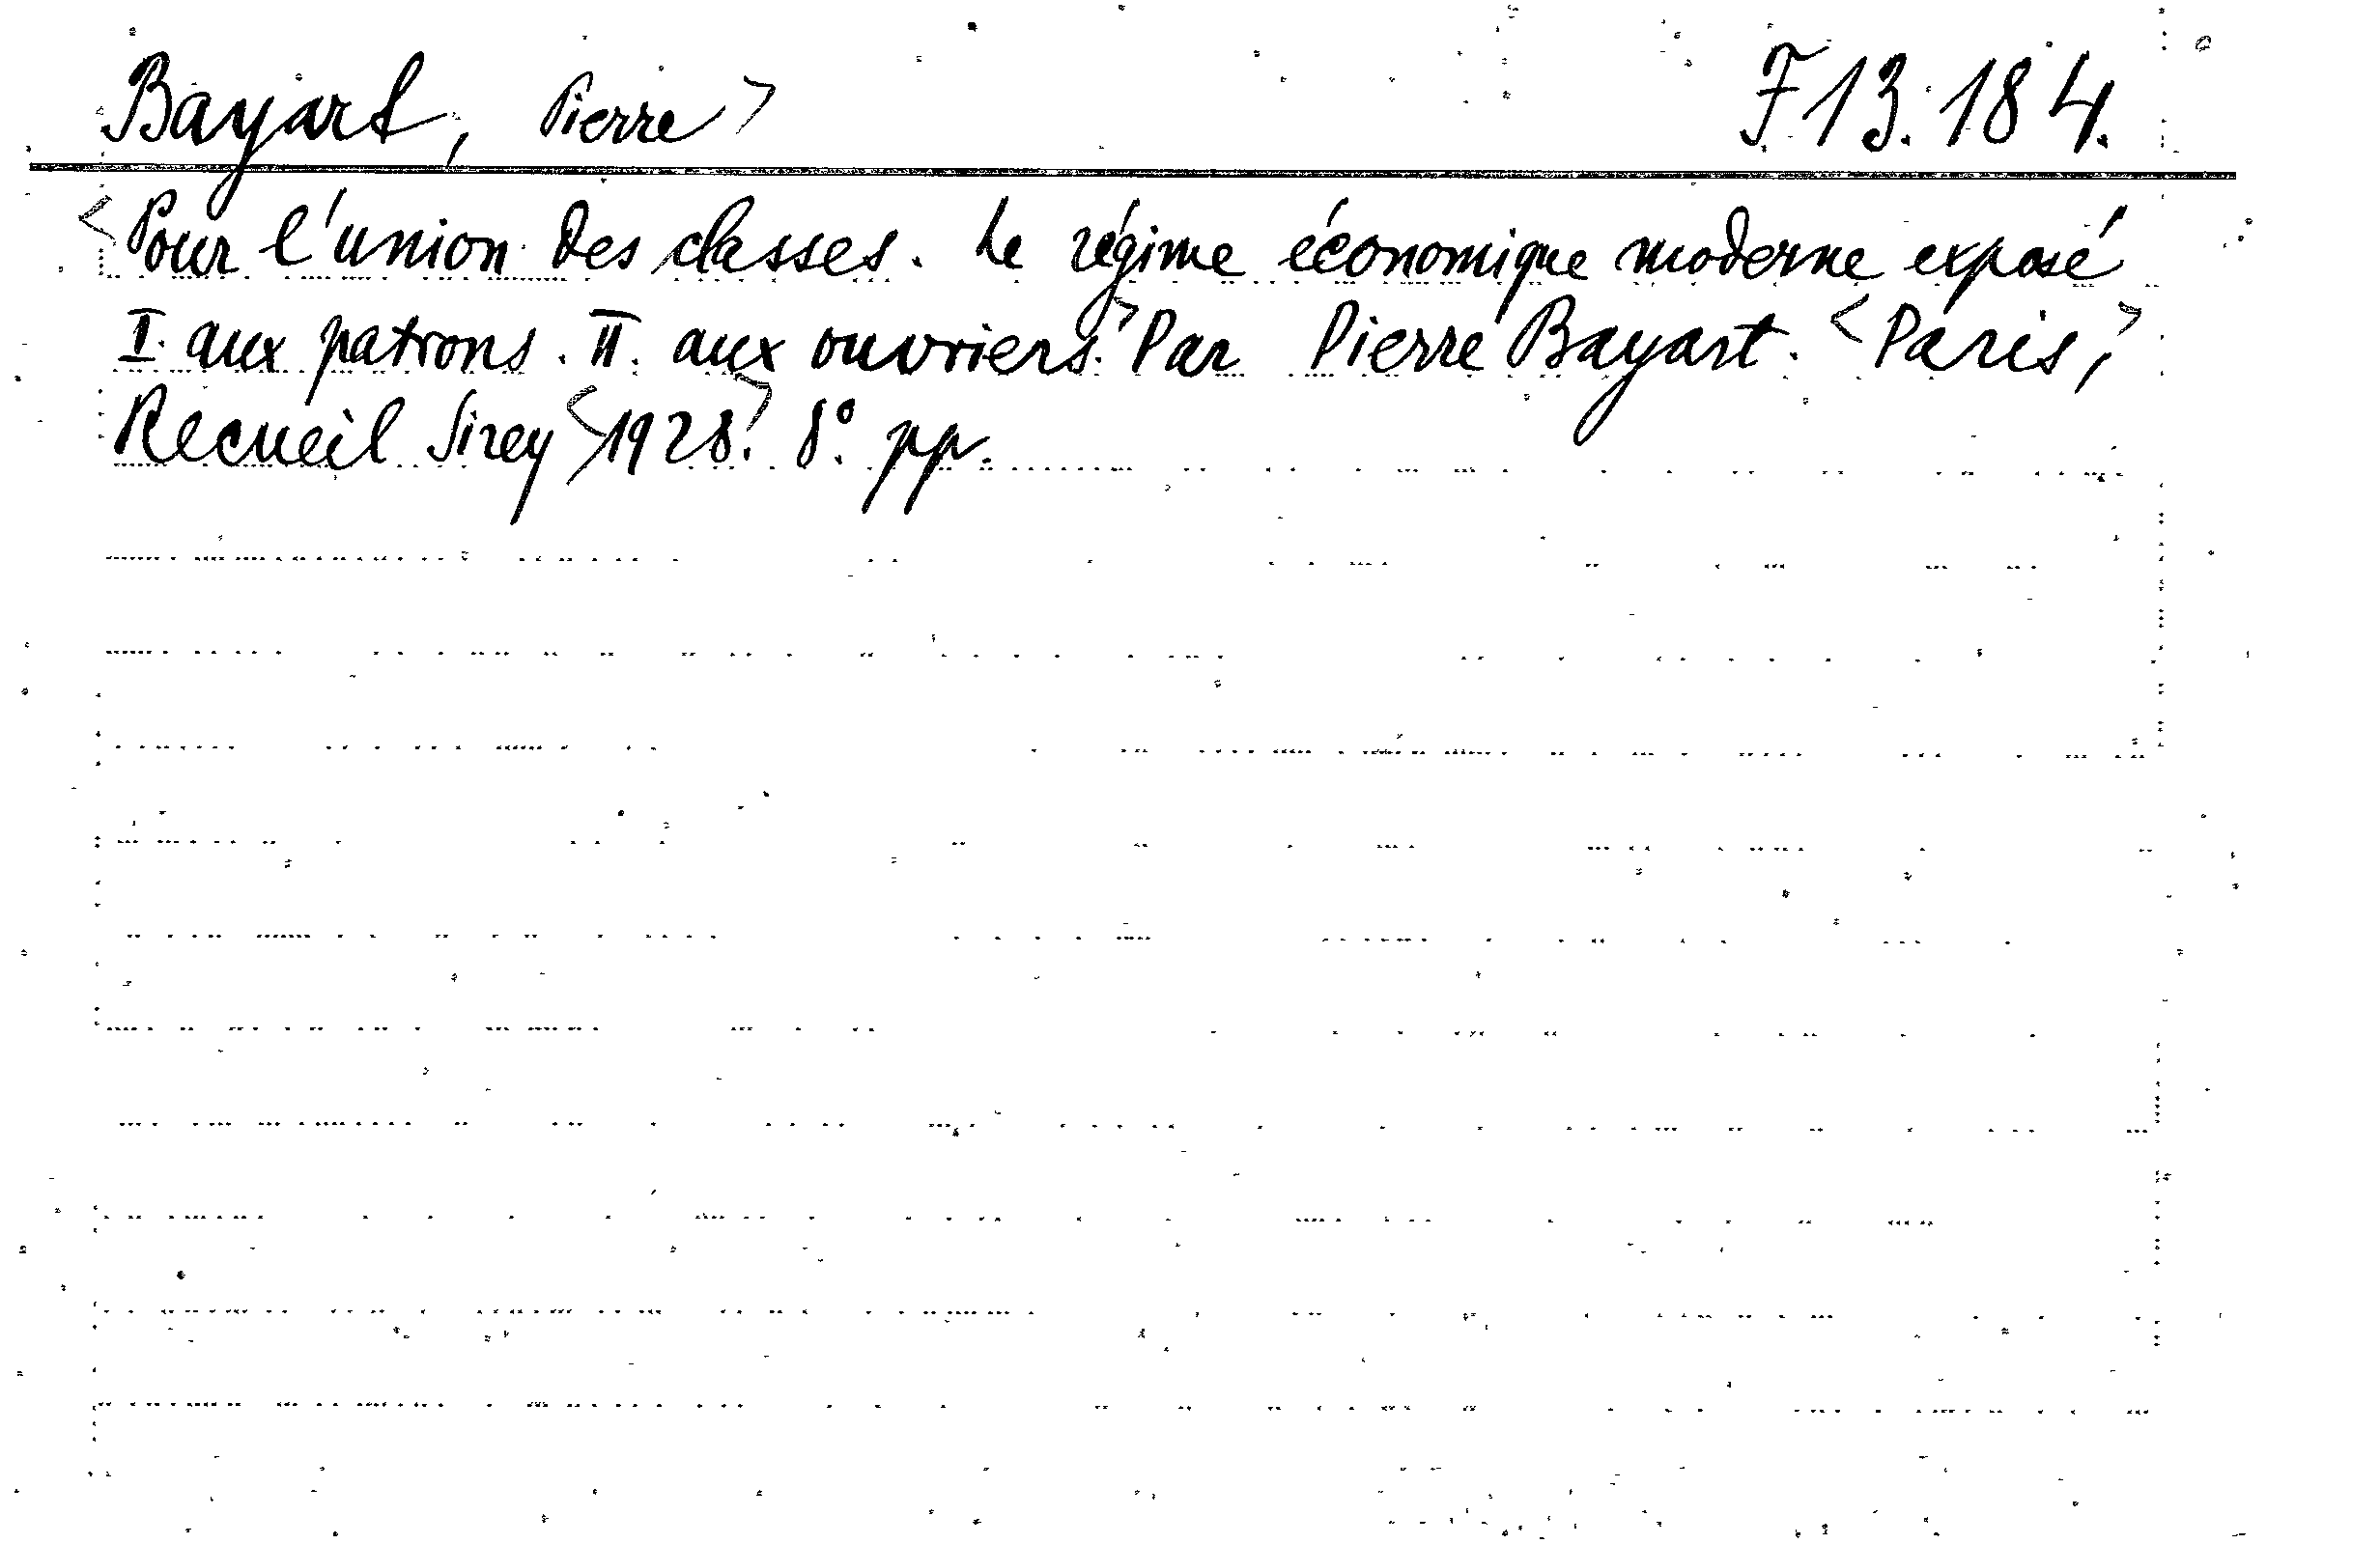 Bayart, Pierre> F 13.184.
<Pour l'union des classes. Le régime économique moderne exposé
I. aux patrons. II. aux ouvriers.> Par Pierre Bayart. <Paris,>
Recueil Sirey <1928.> 8°. pp.